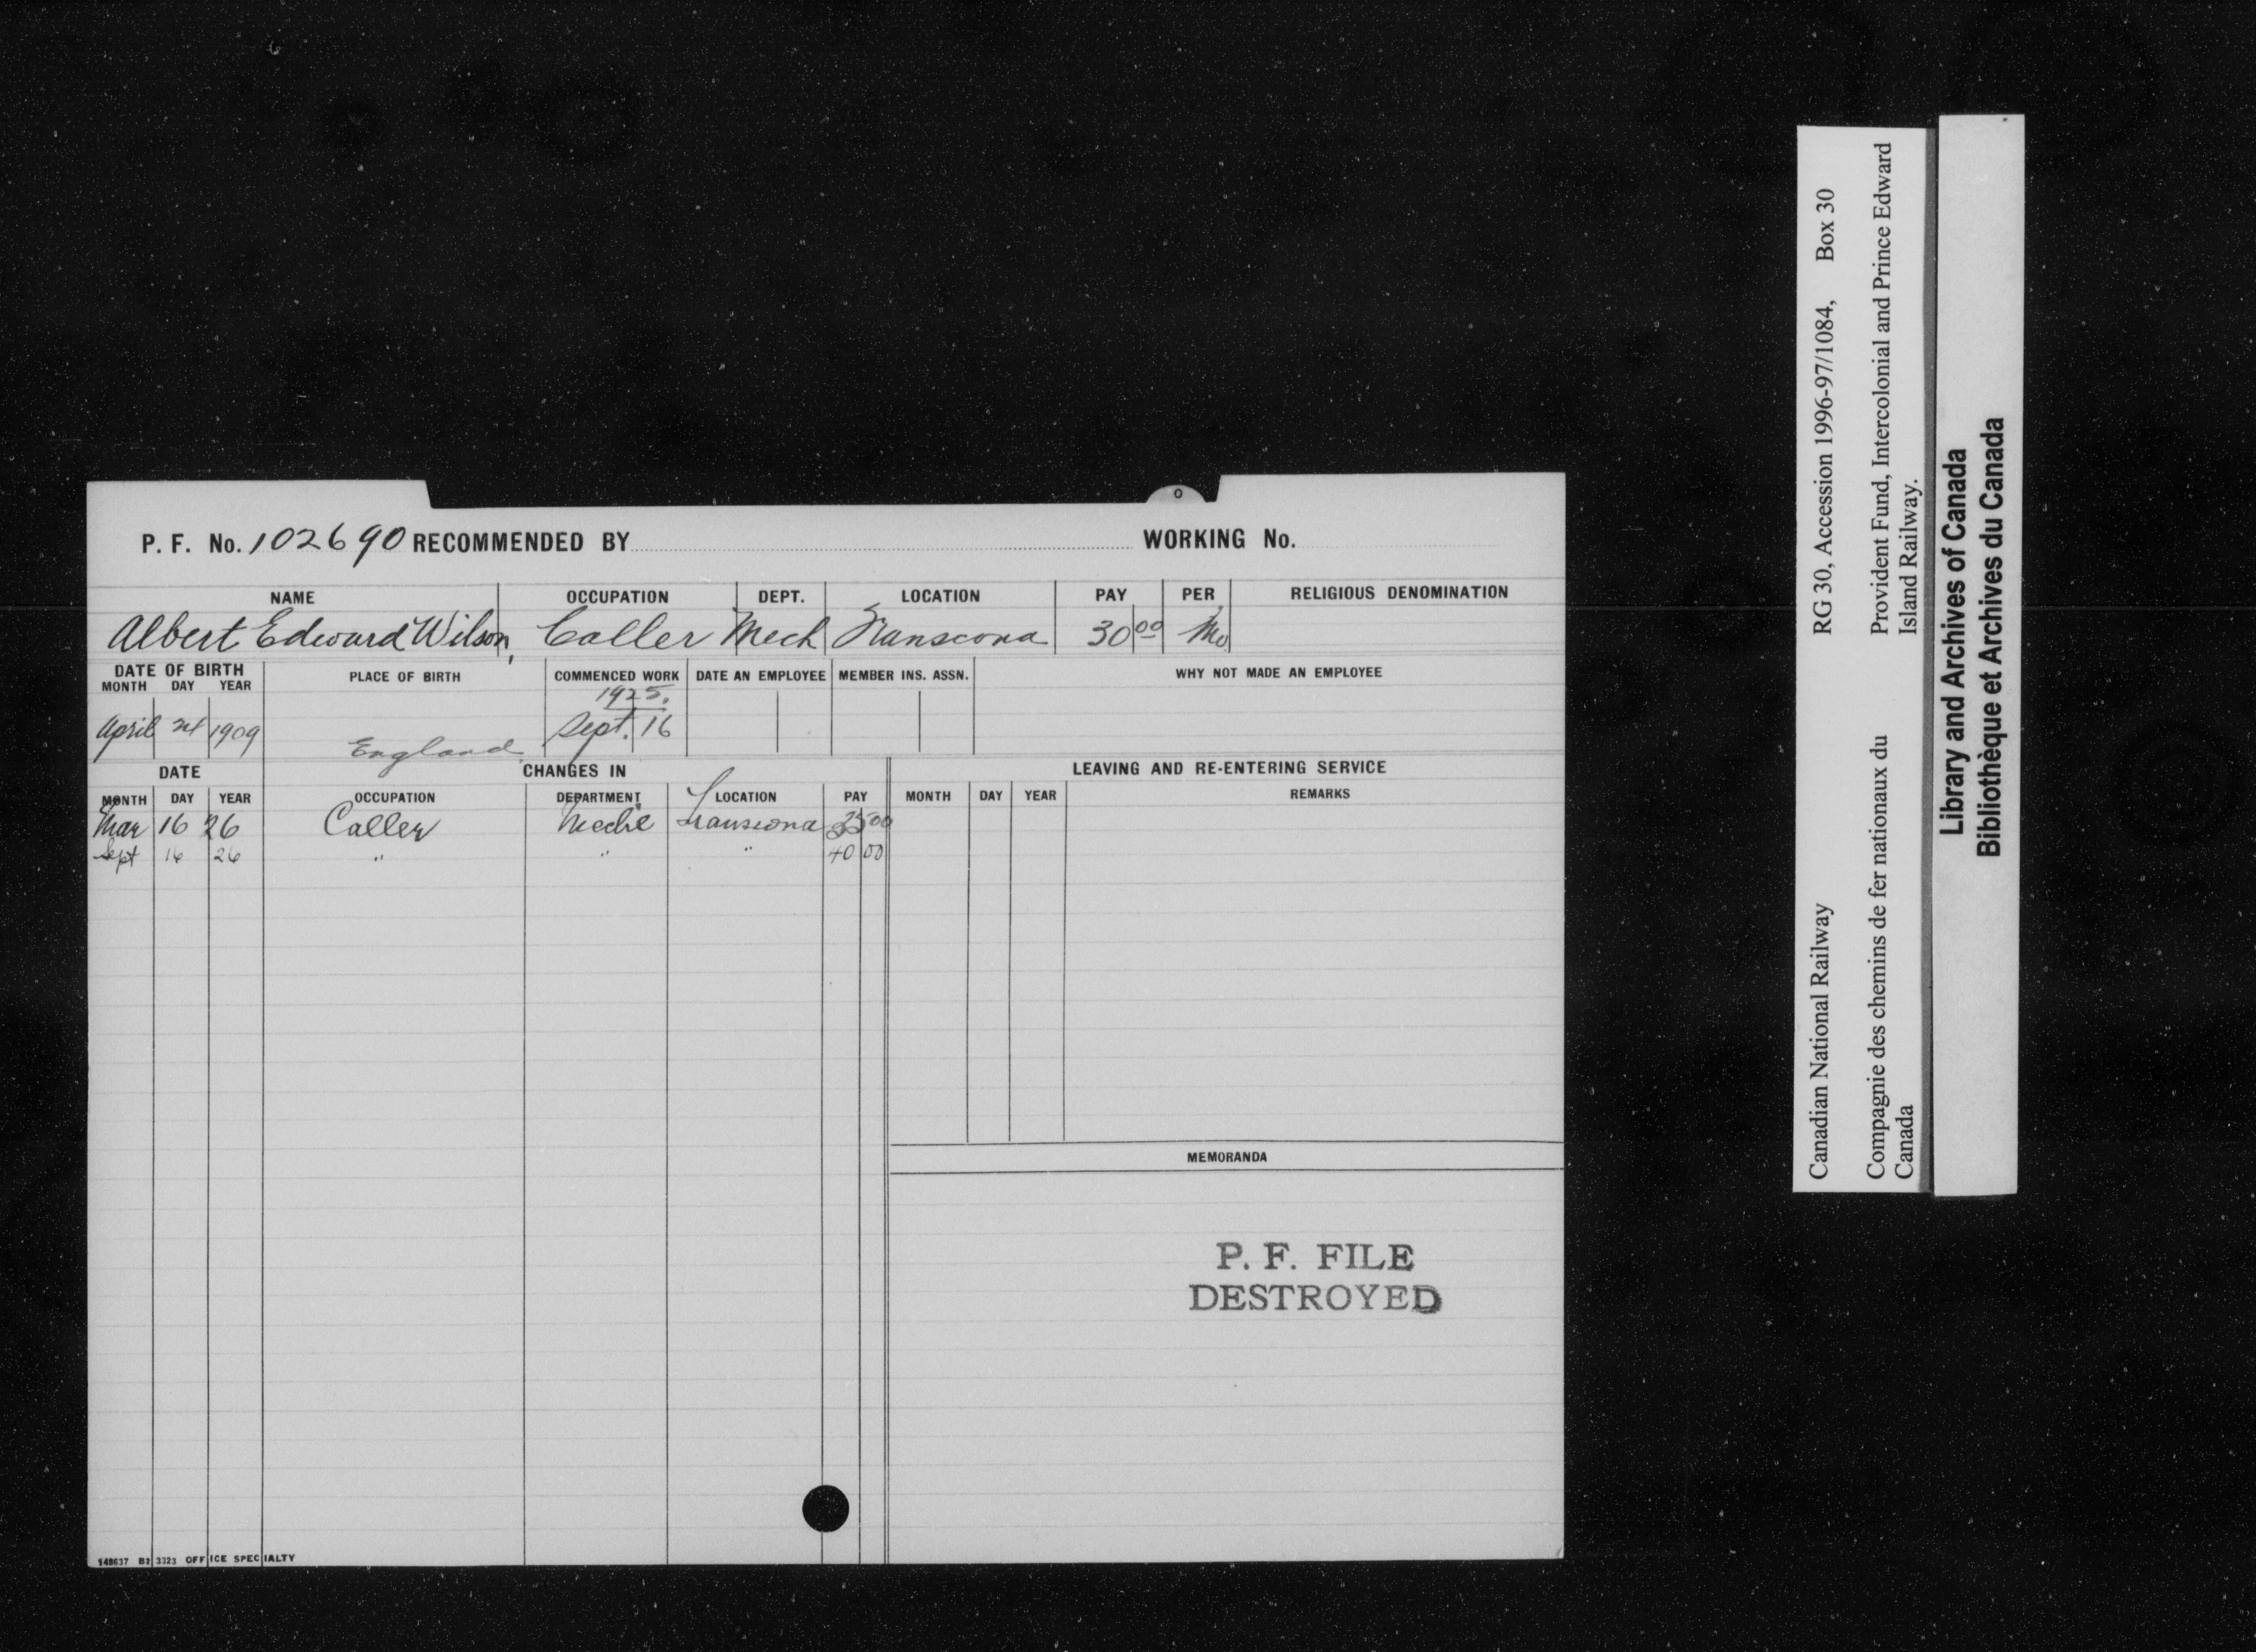 P. F. No. 102690 RECOMMENDED BY WORKING No.
NAME OCCUPATION DEPT. LOCATION PAY PER RELIGIOUS DENOMINATION
Albert Edward Wilson, Caller Mech Transcona 30 00 Mo
DATE OF BIRTH PLACE OF BIRTH COMMENCED WORK DATE AN EMPLOYEE MEMBER INS. ASSN. WHY NOT MADE AN EMPLOYEE
MONTH DAY YEAR
1925.
April 24 1909 England Sept. 16
DATE CHANGES IN LEAVING AND RE-ENTERING SERVICE
MONTH DAY YEAR OCCUPATION DEPARTMENT LOCATION PAY MONTH DAY YEAR REMARKS
Mar 16 26 Caller Mechl Transcona 35 00
Sept 16 26 " " " 40 00
MEMORANDA
P. F. FILE
DESTROYED
148637 B2 3323 OFFICE SPECIALTY
Canadian National Railway RG 30, Accession 1996-97/1084, Box 30
Compagnie des chemins de fer nationaux du Provident Fund, Intercolonial and Prince Edward
Canada Island Railway.
Library and Archives of Canada
Bibliothèque et Archives du Canada